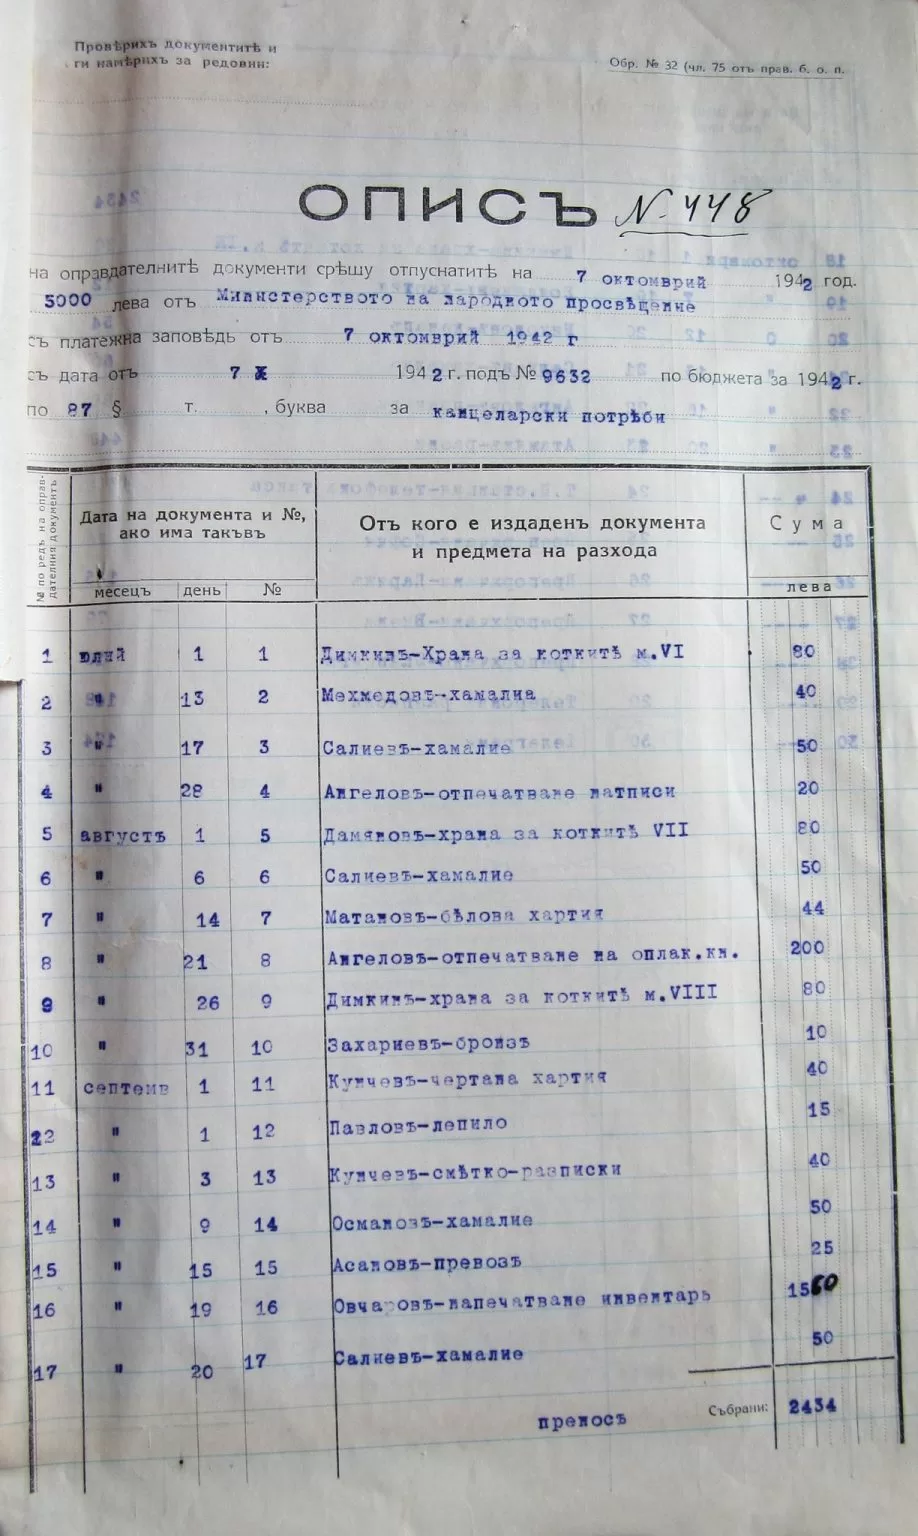 Провѣрихъ документитѣ и
ги намѣрихъ за редовни:
Обр. № 32 (чл. 75 отъ прав. б. о. п.
ОПИСЪ № 448
на оправдателнитѣ документи срѣшу отпуснатитѣ на 7 октомврий 1942 год.
5000 лева отъ Министерството на народното просвѣщение
съ платежна заповѣдь отъ 7 октомврий 1942 г
съ дата отъ 7 X 1942 г. подъ № 9632 по бюджета за 1942 г.
по 87 § т. , буква за канцеларски потрѣби
№ по редъ на оправдателния документъ
Дата на документа и №, ако има такъвъ
Отъ кого е издаденъ документа и предмета на разхода
Сума
месецъ день № лева
1 юлий 1 1 Димкинъ-Храна за коткитѣ м.VI 80
2 " 13 2 Мехмедовъ-хамалиа 40
3 " 17 3 Салиевъ-хамалие 50
4 " 28 4 Ангеловъ-отпечатване натписи 20
5 августъ 1 5 Дамяновъ-храна за коткитѣ VII 80
6 " 6 6 Салиевъ-хамалие 50
7 " 14 7 Матановъ-бѣлова хартия 44
8 " 21 8 Ангеловъ-отпечатване на оплак.кн. 200
9 " 26 9 Димкинъ-храна за коткитѣ м.VIII 80
10 " 31 10 Захариевъ-бронзъ 10
11 септемв 1 11 Кунчевъ-чертана хартия 40
12 " 1 12 Павловъ-лепило 15
13 " 3 13 Кунчевъ-смѣтко-разписки 40
14 " 9 14 Османовъ-хамалие 50
15 " 15 15 Асановъ-превозъ 25
16 " 19 16 Овчаровъ-напечатване инвентаръ 1560
17 " 20 17 Салиевъ-хамалие 50
преносъ Събрани: 2434